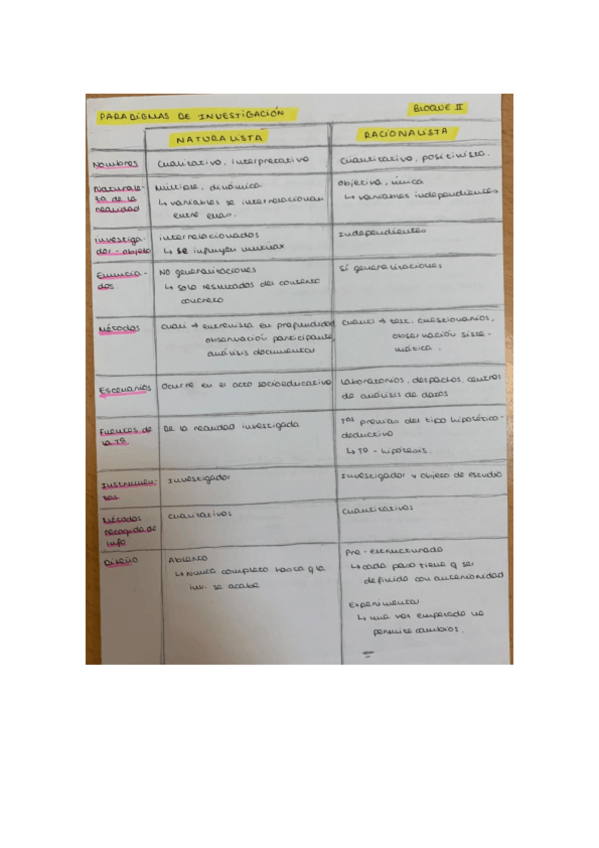 PARADIGMAS DE INVESTIGACIÓN
BLOQUE II
NATURALISTA
RACIONALISTA
Nombres
Cualitativo, interpretativo
Cuantitativo, positivista.
Naturale-
za de la
realidad
Múltiple, dinámica
↳ variables se interrelacionan
entre ellas.
Objetiva, única
↳ variables independientes
Investiga-
dor - objeto
interrelacionados
↳ se influyen mutuax
Independientes
Enuncia-
dos
No generalizaciones
↳ solo resultados del contexto
concreto
Sí generalizaciones
Métodos
Cuali → entrevista en profundidad
observación participante,
análisis documental
Cuanti → test, cuestionarios,
observación siste-
mática.
Escenarios
Ocurre en el acto socioeducativo
Laboratorios, despachos, centros
de análisis de datos
Fuentes de
la Tª
De la realidad investigada
Tªs previas del tipo hipotético-
deductivo
↳ Tª - hipótesis.
Instrumen-
tos
Investigador
Investigador y objeto de estudio
Métodos
recogida de
info
Cualitativos
Cuantitativos
Diseño
Abierto
↳ Nunca completo hasta q la
inv. se acabe
Pre-estructurado
↳ cada paso tiene q ser
definido con anterioridad
Experimental
↳ una vez empezado no
permite cambios.